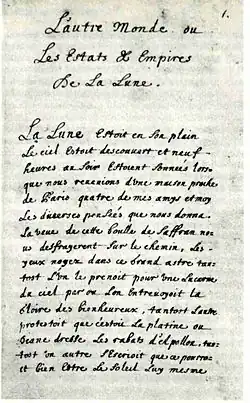 1.
L'autre Monde ou
Les Estats & Empires
De La Lune.
La Lune Estoit en Son plain
Le ciel Estoit descouuert et neuf
heures au Soir Estoient Sonnées lors
que nous reuenions d'vne maison proche
de Paris quatre de mes amys et moy
Les diuerses pensées que nous donna
La veue de cette boulle de Saffran no
us desfrayerent Sur le chemin, Les
yeux noyez dans ce Grand astre tan
tost L'vn le prenoit pour vne Lucarne
du ciel par ou L'on Entreuoyoit la
Gloire des bienheureux, tantost L'autre
protestoit que c'estoit La platine ou
Diane dresse Les rabats d'Apollon, tan
tost vn autre S'escrioit que ce pourro
it bien Estre Le Soleil Luy mesme